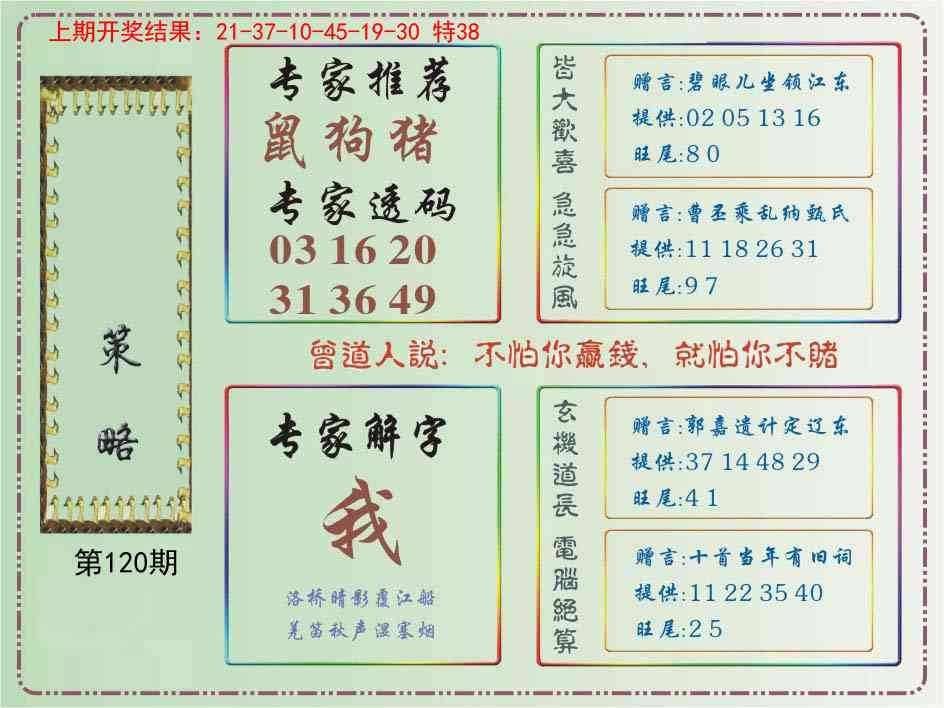 上期开奖结果：21-37-10-45-19-30 特38
策略
第120期
专家推荐
鼠狗猪
专家透码
03 16 20
31 36 49
皆大歡喜
赠言:碧眼儿坐领江东
提供:02 05 13 16
旺尾:8 0
急急旋風
赠言:曹丕乘乱纳甄氏
提供:11 18 26 31
旺尾:9 7
曾道人説：不怕你贏錢，就怕你不賭
专家解字
我
洛桥晴影覆江船
羌笛秋声湿塞烟
玄機道長
赠言:郭嘉遗计定辽东
提供:37 14 48 29
旺尾:4 1
電腦絕算
赠言:十首当年有旧词
提供:11 22 35 40
旺尾:2 5